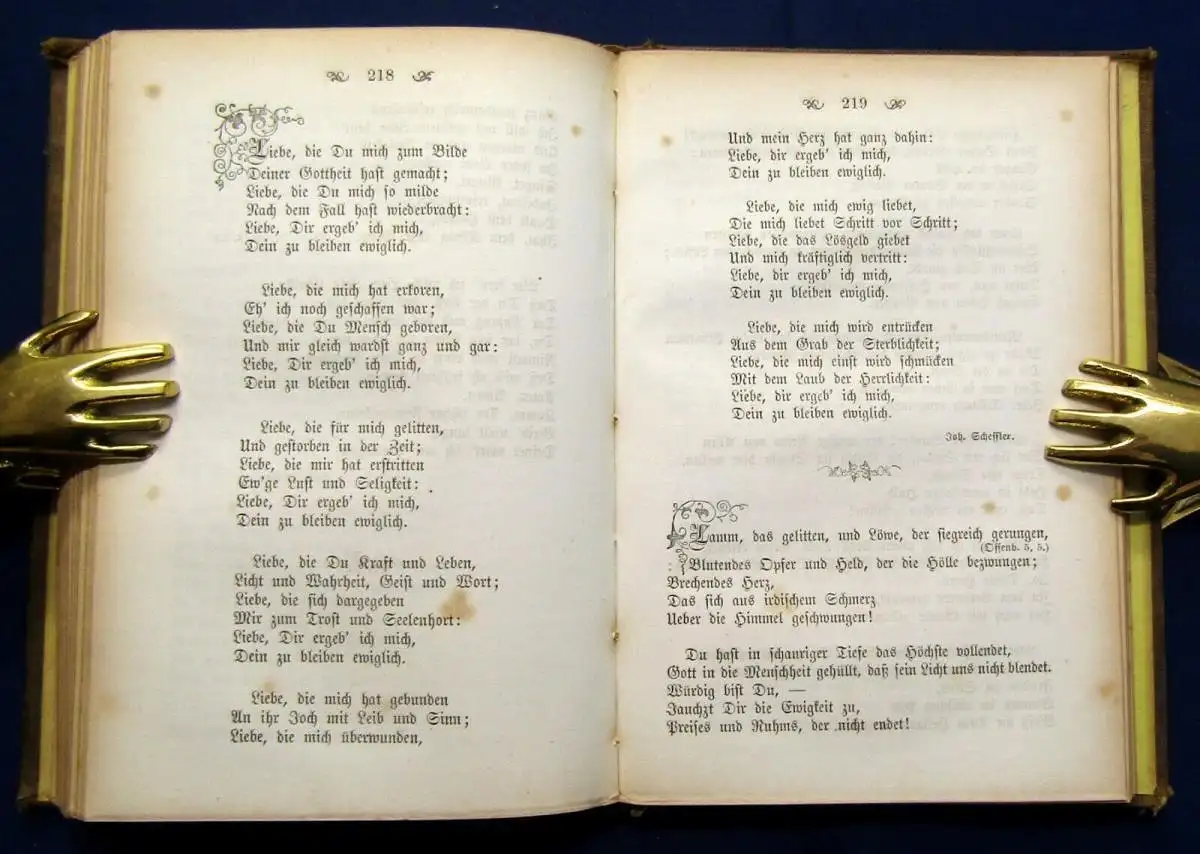 218
Liebe, die Du mich zum Bilde
Deiner Gottheit hast gemacht;
Liebe, die Du mich so milde
Nach dem Fall hast wiederbracht:
Liebe, Dir ergeb' ich mich,
Dein zu bleiben ewiglich.
Liebe, die mich hat erkoren,
Eh' ich noch geschaffen war;
Liebe, die Du Mensch geboren,
Und mir gleich wardst ganz und gar:
Liebe, Dir ergeb' ich mich,
Dein zu bleiben ewiglich.
Liebe, die für mich gelitten,
Und gestorben in der Zeit;
Liebe, die mir hat erstritten
Ew'ge Lust und Seligkeit:
Liebe, Dir ergeb' ich mich,
Dein zu bleiben ewiglich.
Liebe, die Du Kraft und Leben,
Licht und Wahrheit, Geist und Wort;
Liebe, die sich dargegeben
Mir zum Trost und Seelenhort:
Liebe, Dir ergeb' ich mich,
Dein zu bleiben ewiglich.
Liebe, die mich hat gebunden
An ihr Joch mit Leib und Sinn;
Liebe, die mich überwunden,
219
Und mein Herz hat ganz dahin:
Liebe, dir ergeb' ich mich,
Dein zu bleiben ewiglich.
Liebe, die mich ewig liebet,
Die mich liebet Schritt vor Schritt;
Liebe, die das Lösgeld giebet
Und mich kräftiglich vertritt:
Liebe, dir ergeb' ich mich,
Dein zu bleiben ewiglich.
Liebe, die mich wird entrücken
Aus dem Grab der Sterblichkeit;
Liebe, die mich einst wird schmücken
Mit dem Laub der Herrlichkeit:
Liebe, dir ergeb' ich mich,
Dein zu bleiben ewiglich.
Joh. Scheffler.
Lamm, das gelitten, und Löwe, der siegreich gerungen,
(Offenb. 5, 5.)
Blutendes Opfer und Held, der die Hölle bezwungen;
Brechendes Herz,
Das sich aus irdischem Schmerz
Ueber die Himmel geschwungen!
Du hast in schauriger Tiefe das Höchste vollendet,
Gott in die Menschheit gehüllt, daß sein Licht uns nicht blendet.
Würdig bist Du, —
Jauchzt Dir die Ewigkeit zu,
Preises und Ruhms, der nicht endet!